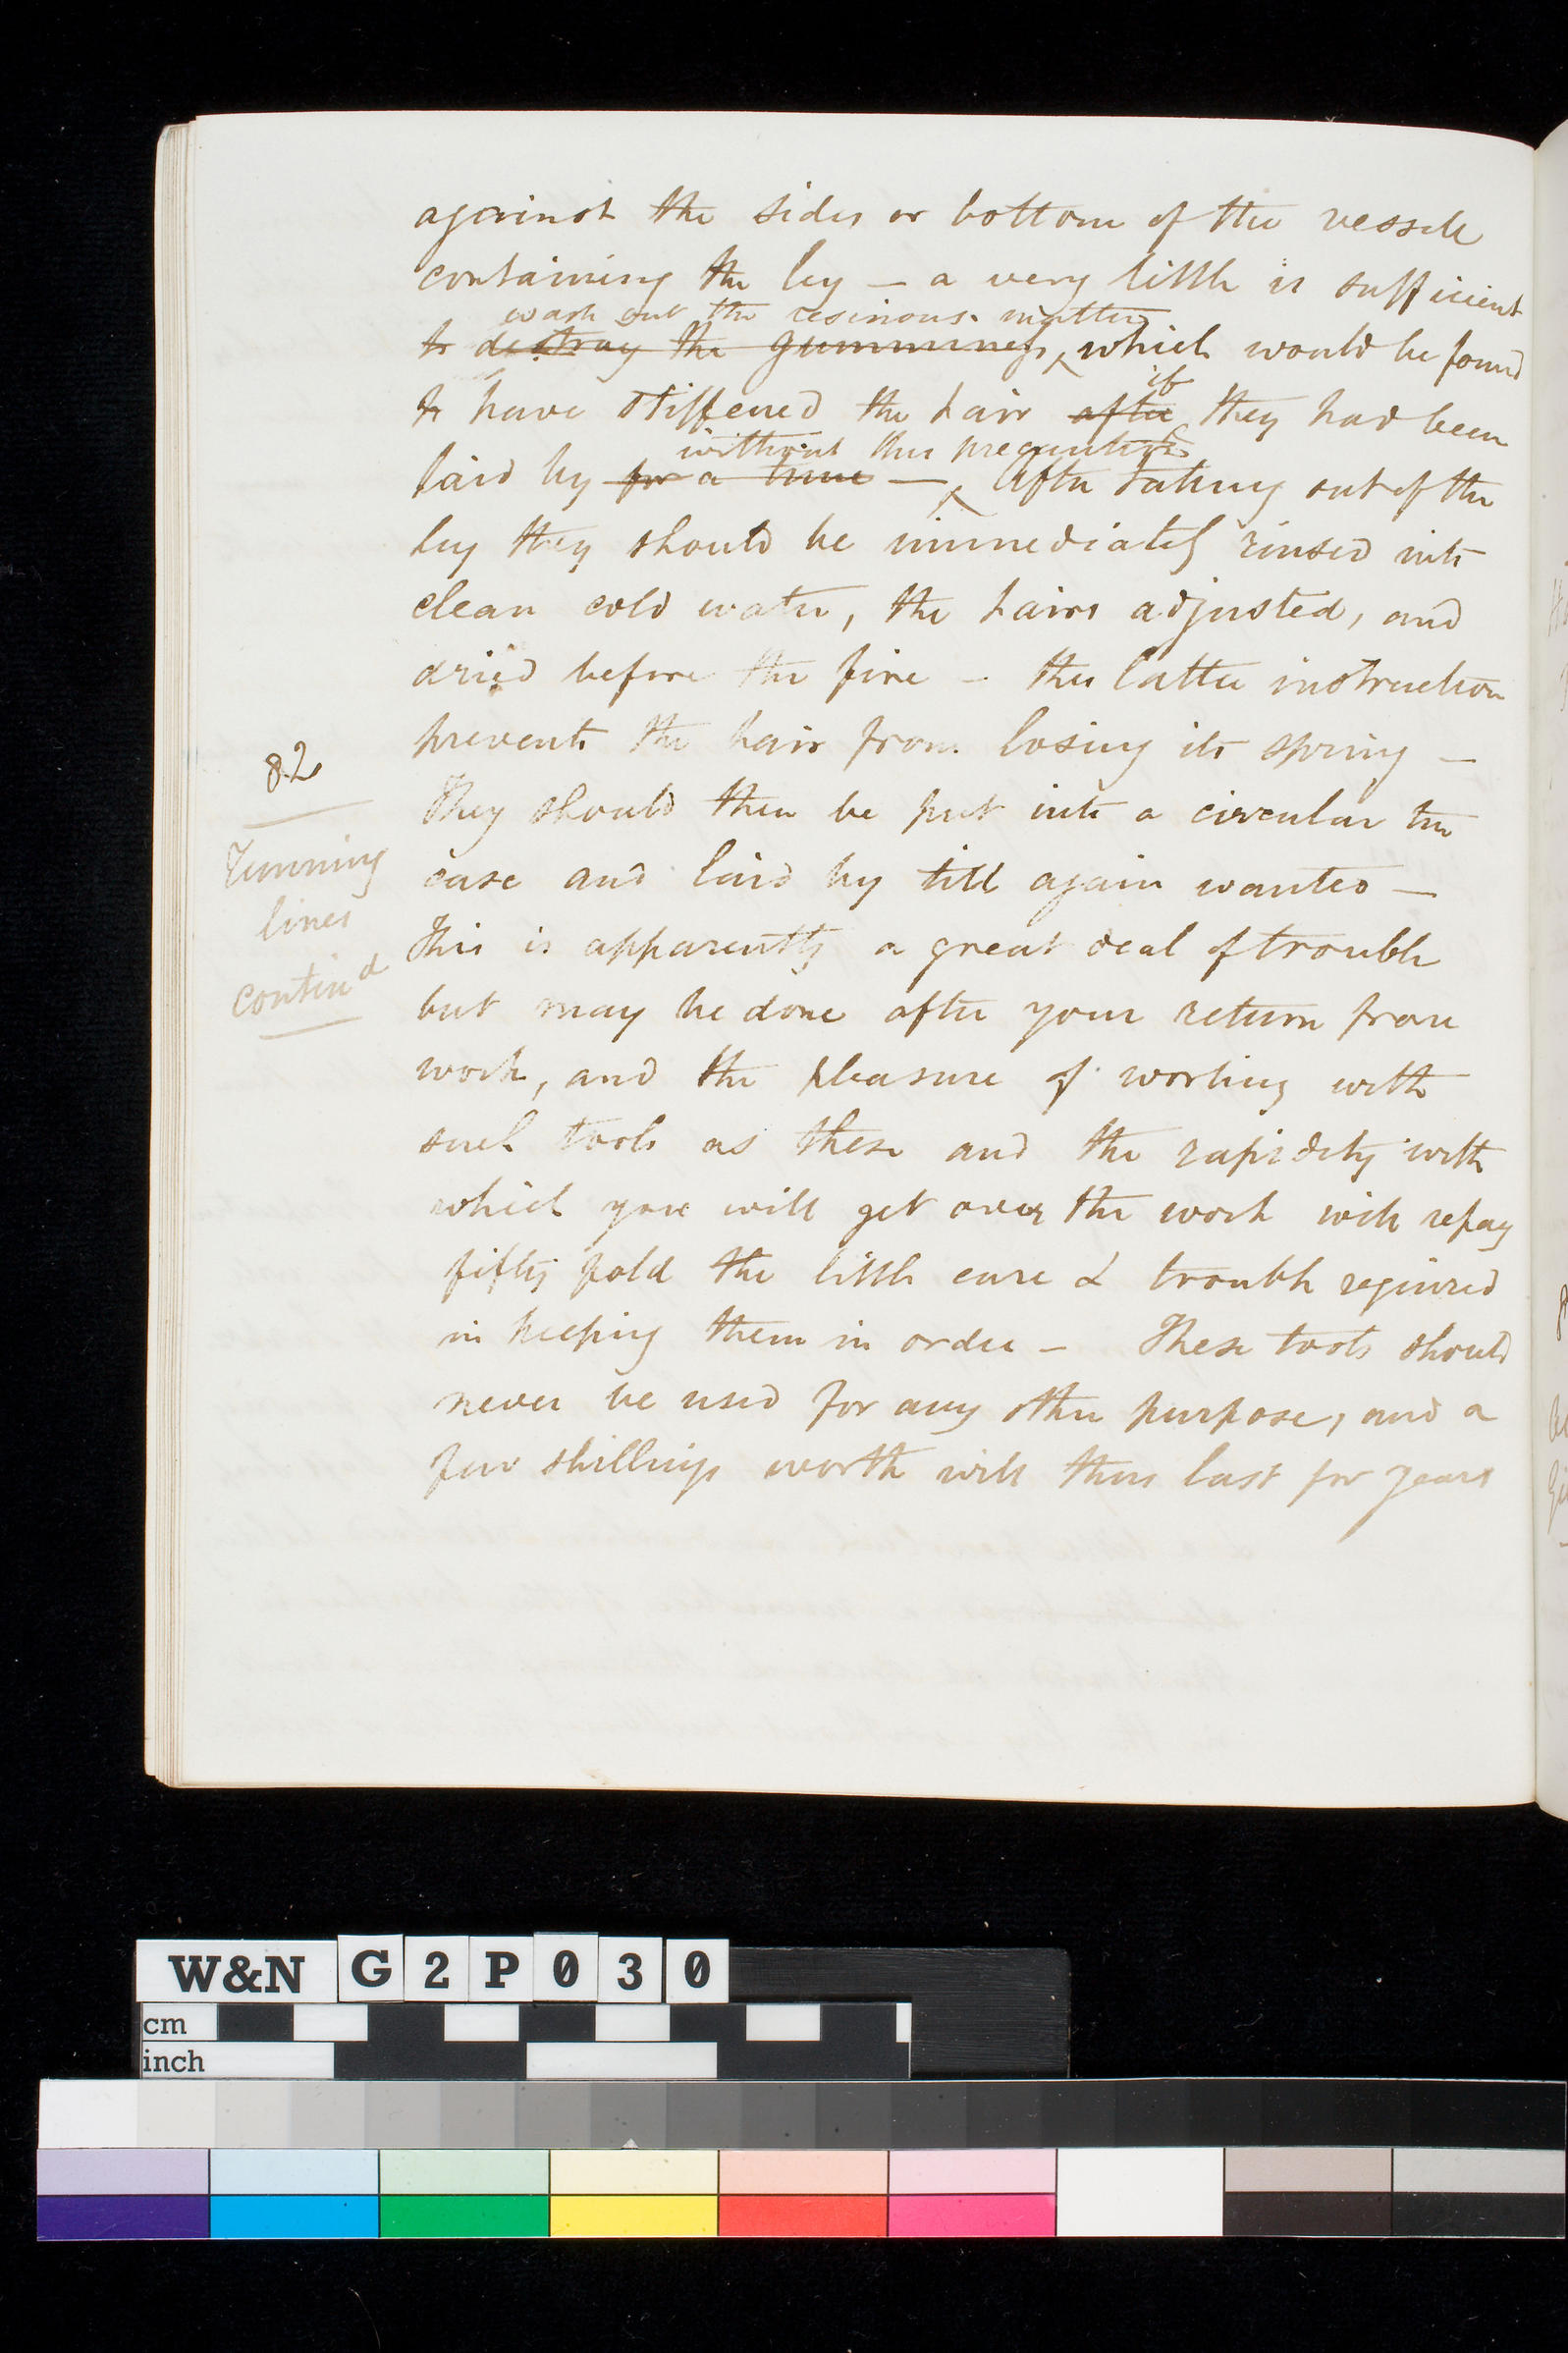 against the sides or bottom of the vessell
containing the ley — a very little is sufficient
wash out the resinous matter
to destroy the gumminess, which would be found
if
to have stiffened the hair after they had been
without this precaution
laid by for a time — After taking out of the
ley they should be immediately rinsed into
clean cold water, the hairs adjusted, and
dried before the fire — this latter instruction
prevents the hair from losing its spring —
82
They should then be put into a circular tin
Running
case and laid by till again wanted —
lines
This is apparently a great deal of trouble
contind
but may be done after your return from
work, and the pleasure of working with
such tools as these and the rapidity with
which you will get over the work will repay
fifty fold the little care & trouble required
in keeping them in order — These tools should
never be used for any other purpose, and a
few shillings worth will thus last for years
W&N G2P030
cm
inch